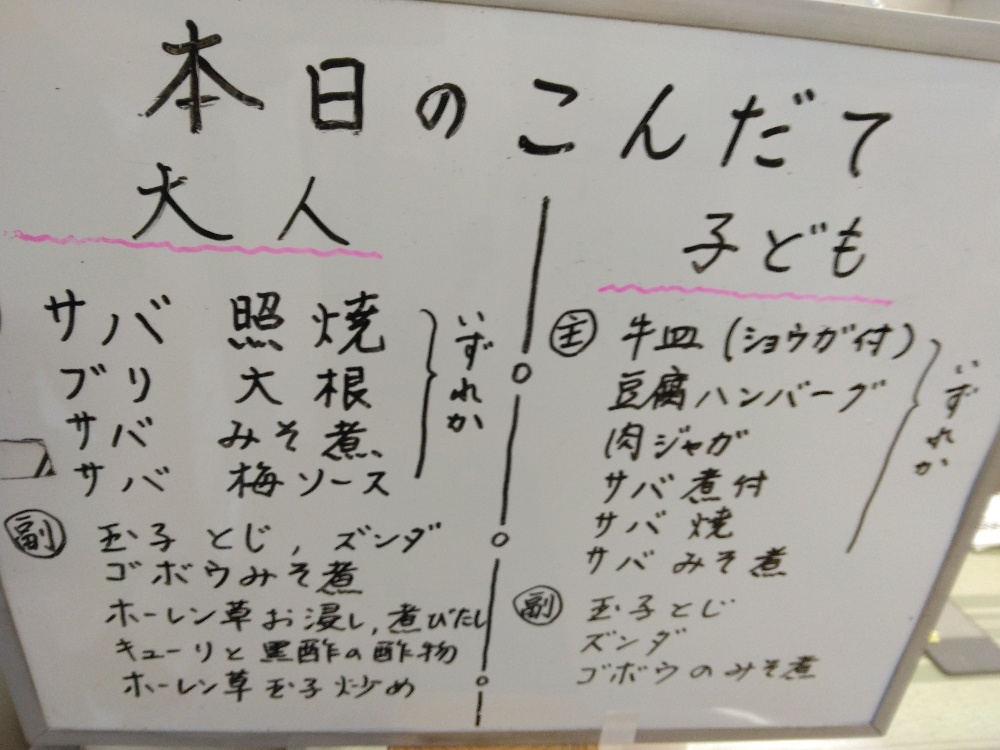 本日のこんだて
大人
サバ 照焼
ブリ 大根
サバ みそ煮
サバ 梅ソース
いずれか
副 玉子とじ, ズンダ
ゴボウみそ煮
ホーレン草お浸し, 煮びたし
キューリと黒酢の酢物
ホーレン草玉子炒め
子ども
主 牛皿(ショウガ付)
豆腐ハンバーグ
肉ジャガ
サバ煮付
サバ 焼
サバ みそ煮
いずれか
副 玉子とじ
ズンダ
ゴボウのみそ煮